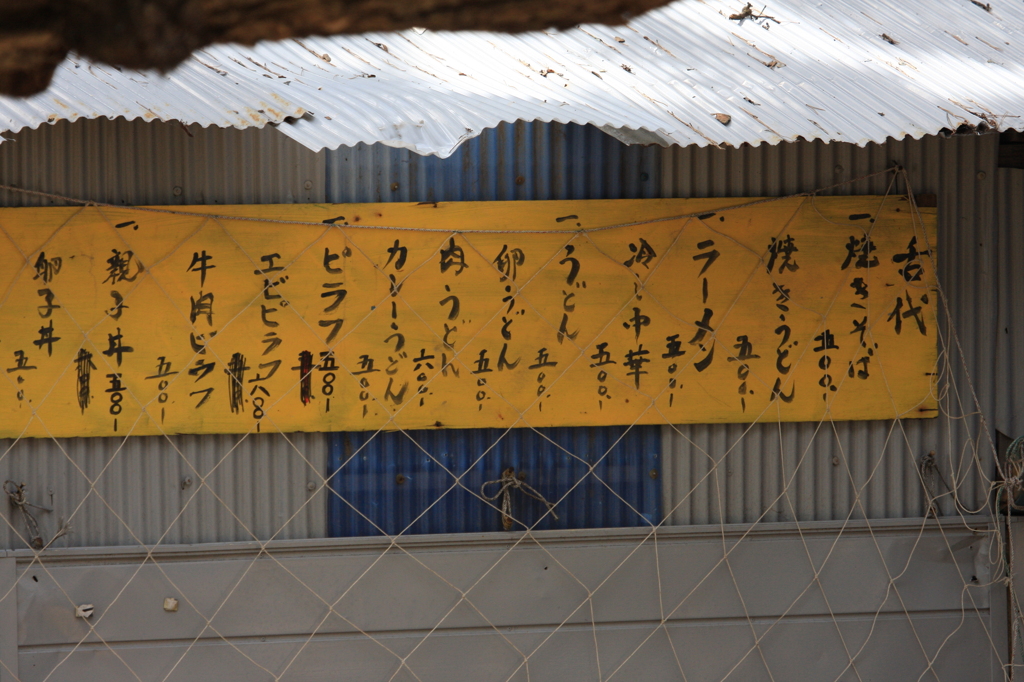 舌代
一、焼きそば 五〇〇、
焼きうどん 五〇〇、
一、ラーメン 五〇〇、
冷し中華 五〇〇、
一、うどん 五〇〇、
卵うどん 五〇〇、
肉うどん 六〇〇、
カレーうどん 五〇〇、
一、ピラフ 五〇〇、
エビピラフ 六〇〇、
牛肉ピラフ 五〇〇、
一、親子丼 五〇〇、
卵子丼 五〇〇、